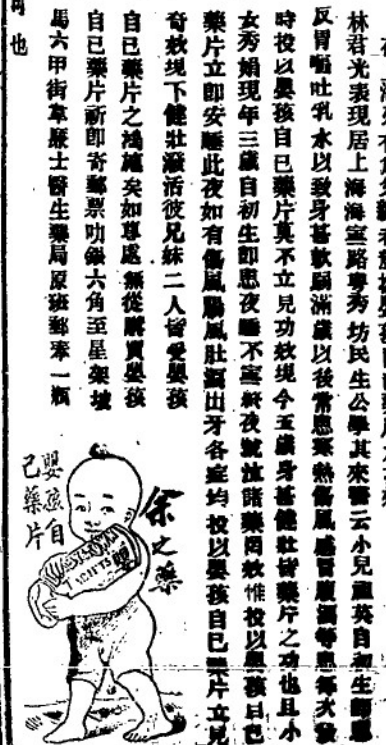 林君光表現居上海海寗路粤秀坊民生公學其來書云小兒
自初生即患
反胃嘔吐乳水以致身甚軟弱滿歲以後常患寒熱傷風感冒腹瀉等
每次發
時投以嬰孩自己藥片莫不立見功效現今五歲身甚健壯皆藥片之功也且小
女秀娟現年三歲自初生即患夜睡不寗終夜號泣諸藥罔效惟投以嬰孩自己
藥片立即安睡此夜如有傷風腸風肚瀉出牙各症均投以嬰孩自己藥片立見
奇效現下健壯潑活彼兄妹二人皆受嬰孩
自己藥片之鴻施矣如尊處無從購買嬰孩
自己藥片祈即寄郵票叻銀六角至星架坡
馬六甲街韋廉士醫生藥局原班郵奉一瓶
可也
余之藥
嬰孩自
己藥片